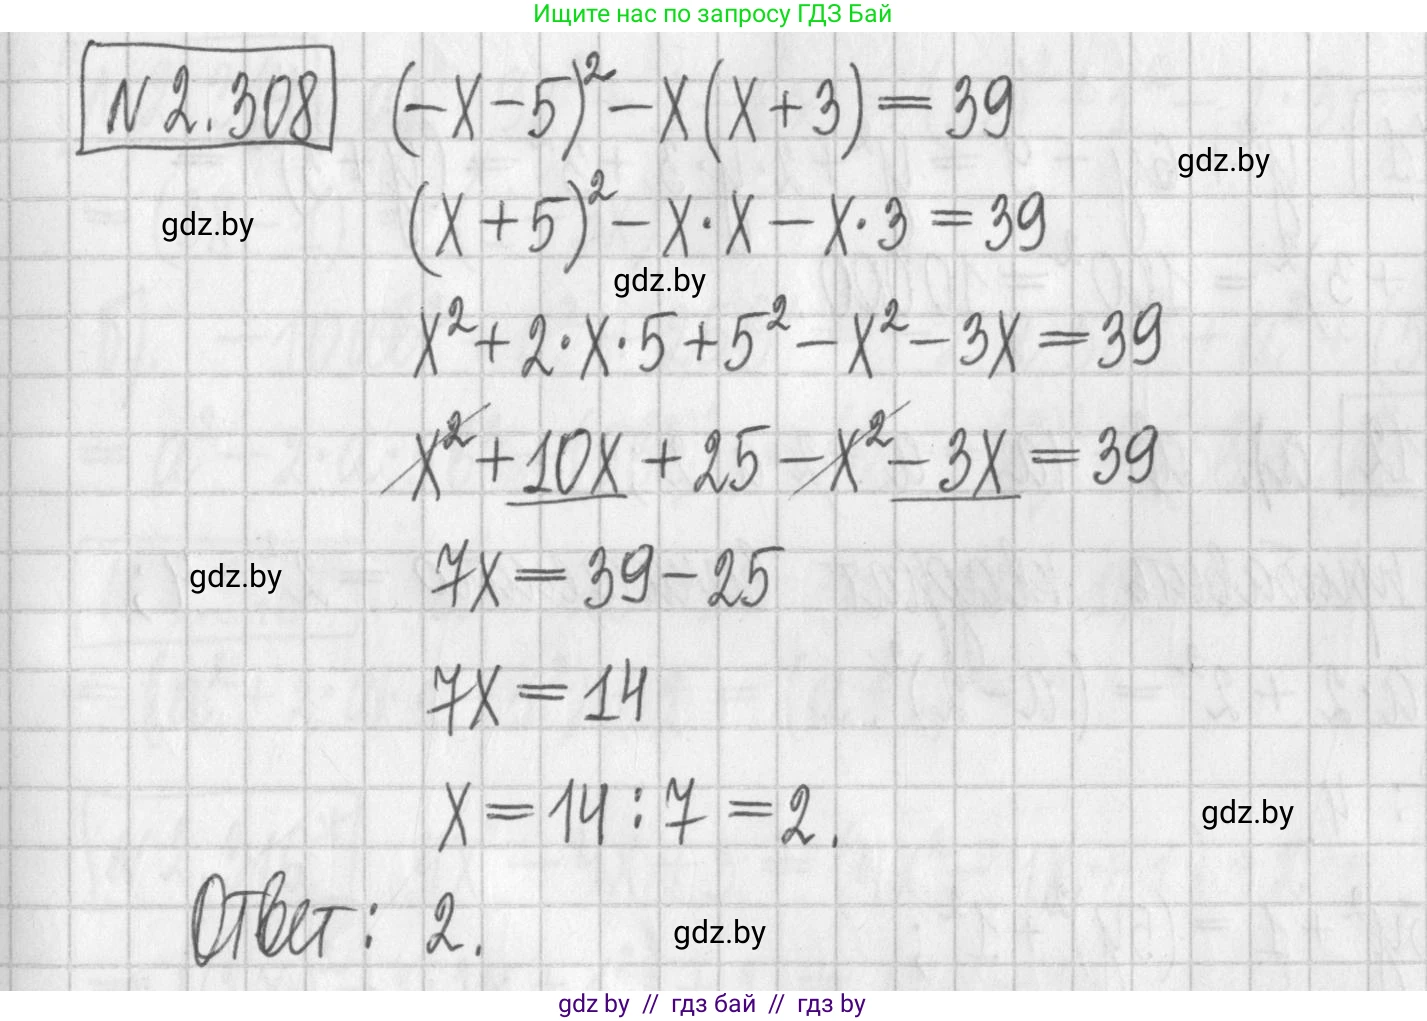 Ищите нас по запросу ГДЗ Бай
N 2.308 (-x-5)² - x(x+3) = 39
gdz.by
gdz.by (x+5)² - x·x - x·3 = 39
gdz.by
x² + 2·x·5 + 5² - x² - 3x = 39
x² + 10x + 25 - x² - 3x = 39
gdz.by 7x = 39 - 25
7x = 14
x = 14 : 7 = 2.
gdz.by
Ответ: 2.
gdz.by
gdz by // гдз бай // гдз by